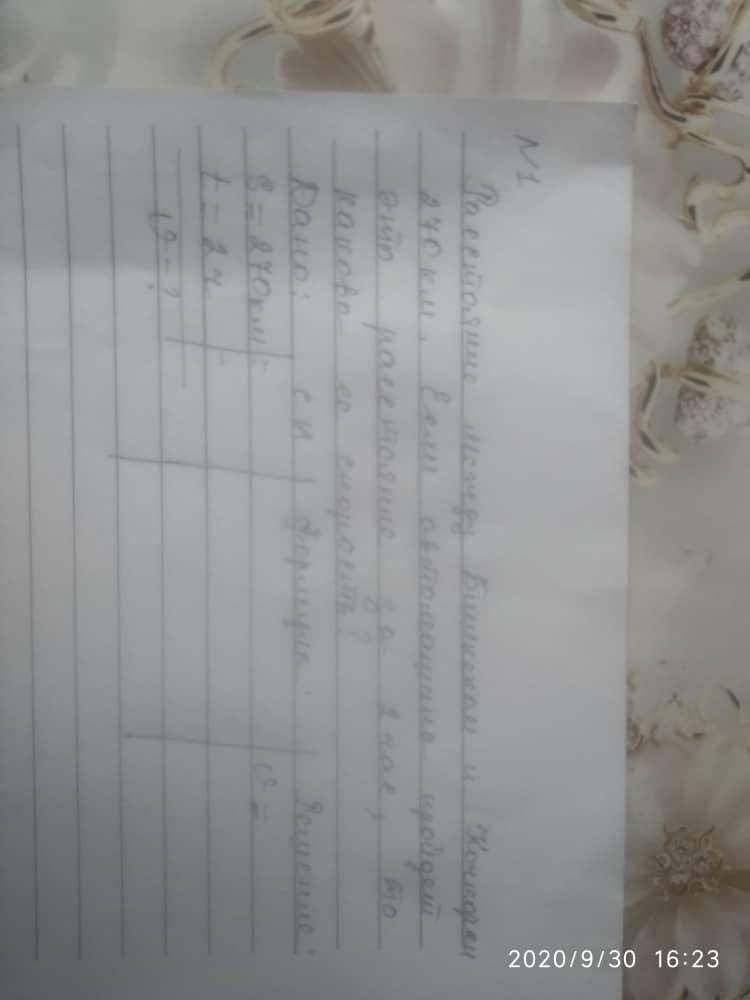 N1
Расстояние между Бишкеком и Кочкоркой
270 км. Если автомашина пройдет
это расстояние за 2 час, то
какова ее скорость?
Дано: СИ Формула: Решение:
S = 270 км =
t = 2 ч =
υ - ?
υ =
2020/9/30 16:23